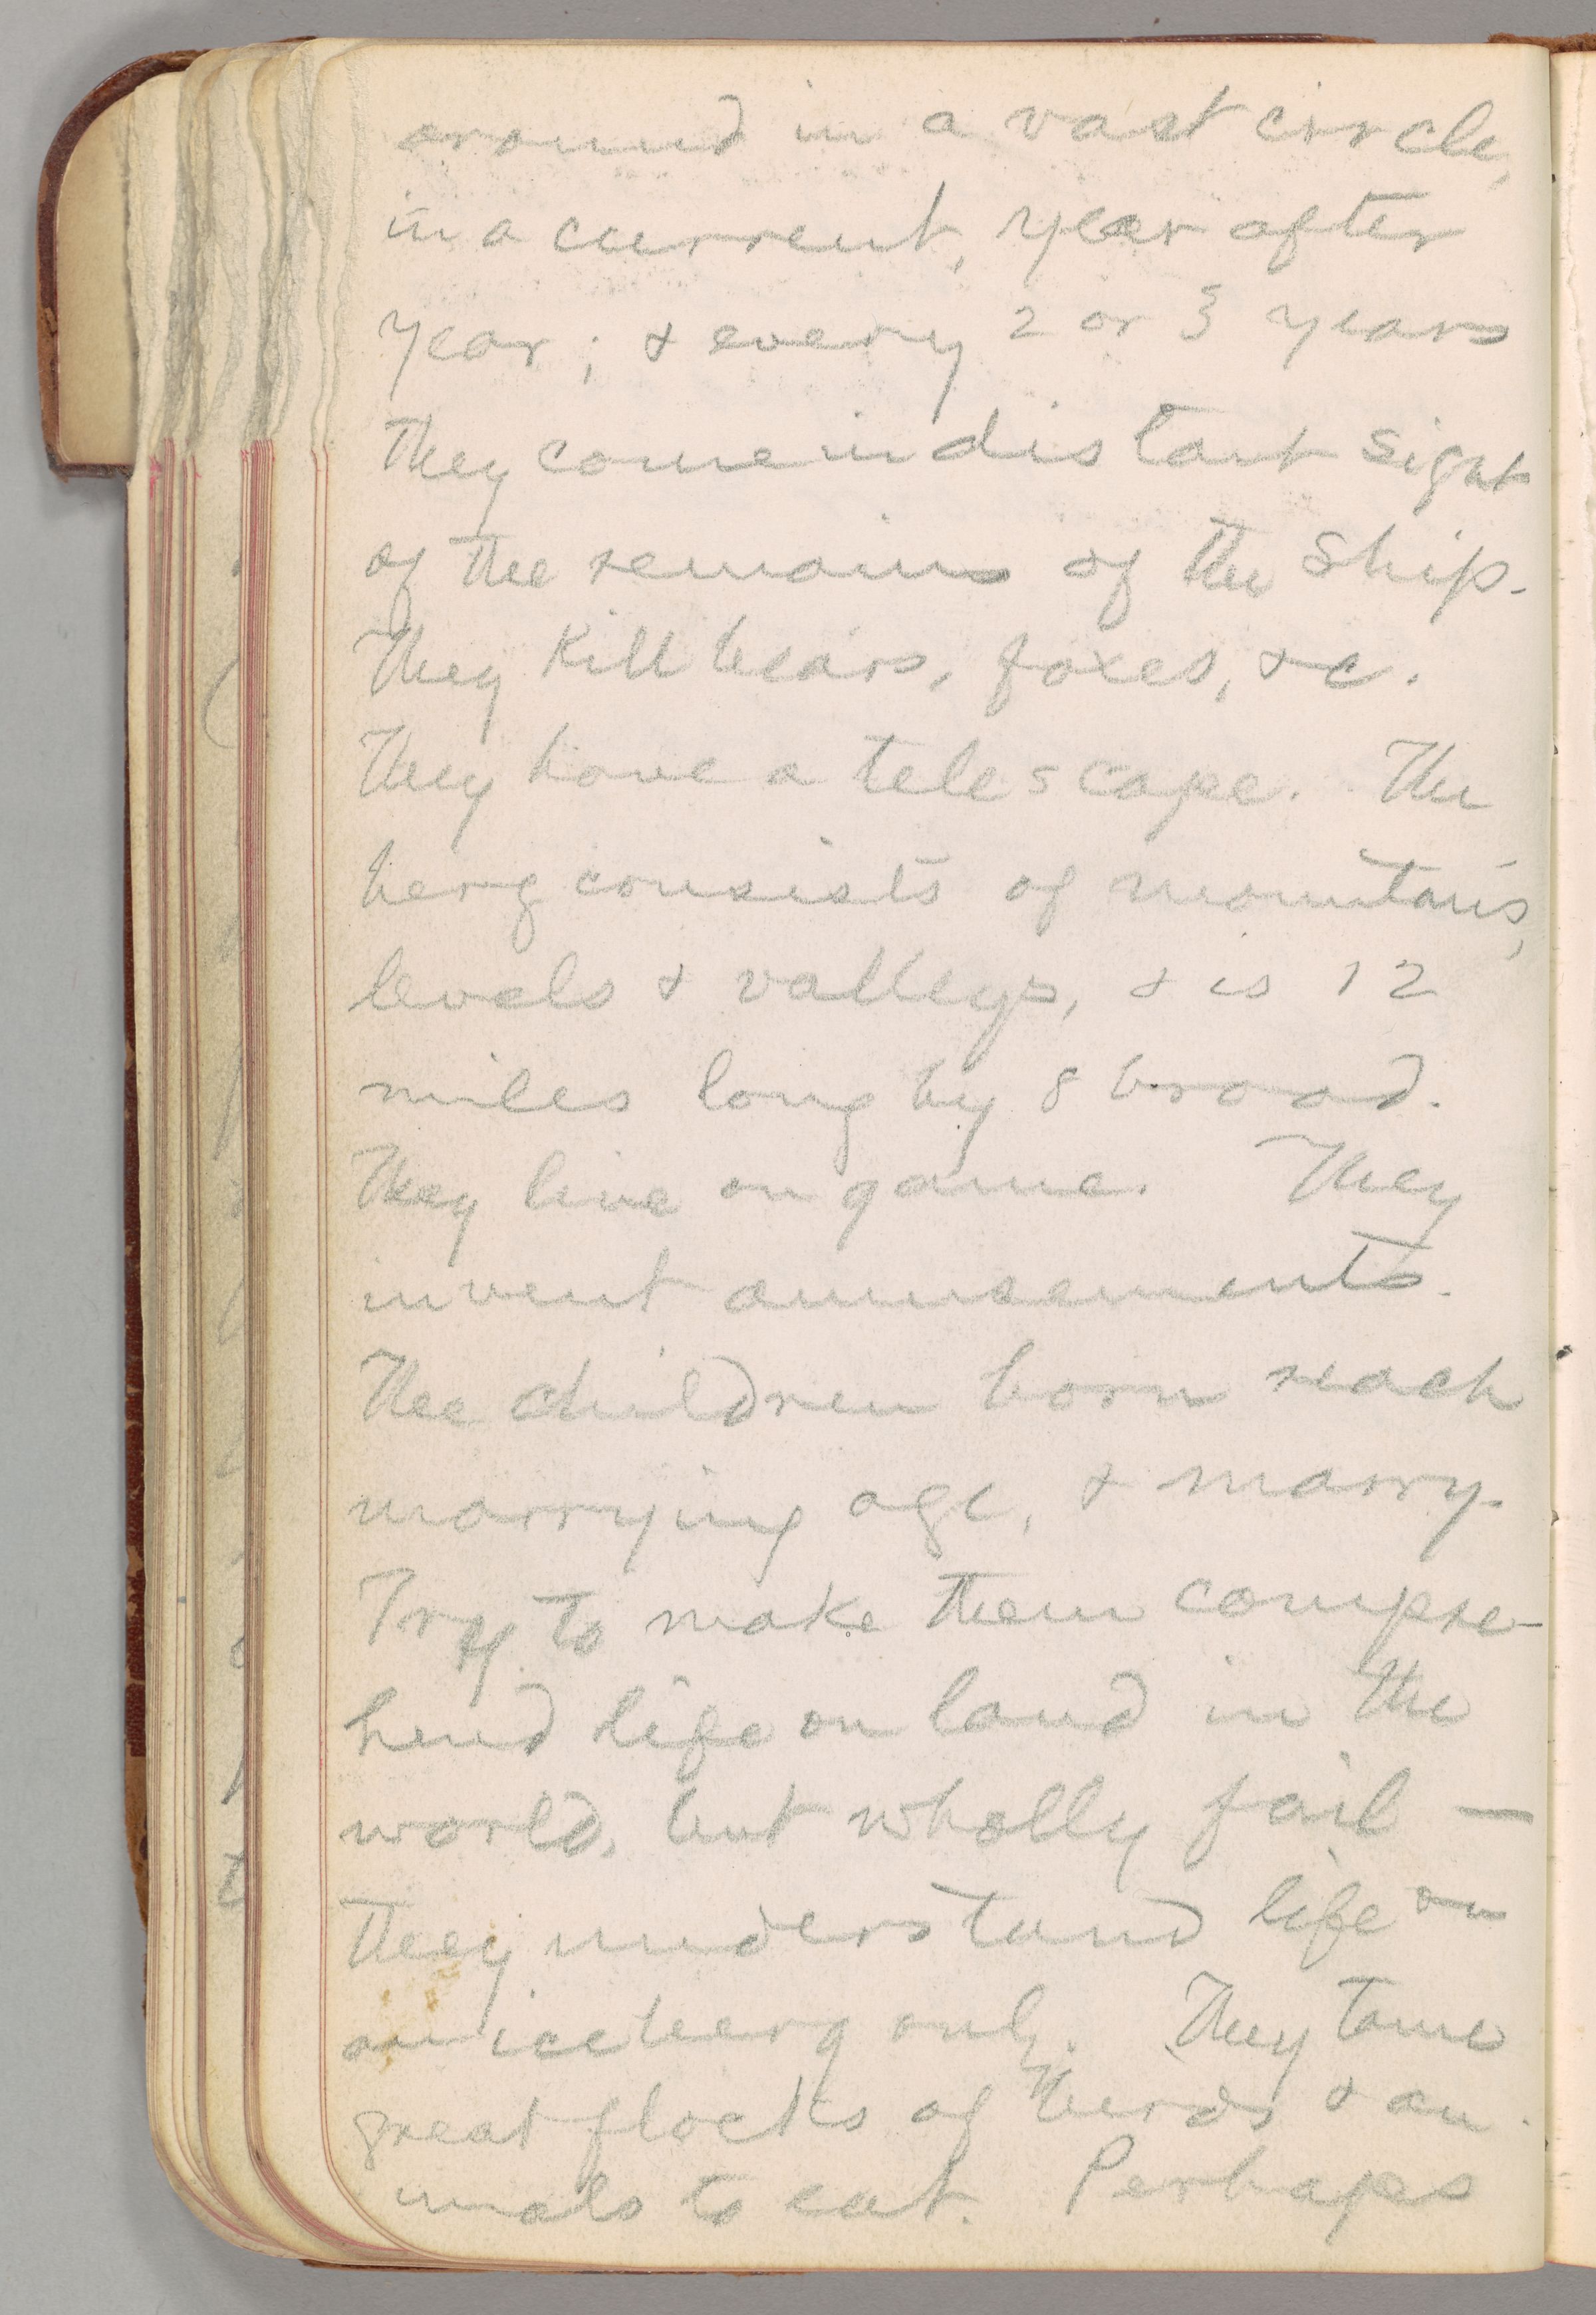 around in a vast circle,
in a current, year after
year; & every 2 or 3 years
they come in distant sight
of the remains of the ship.
They kill bears, foxes, &c.
They have a telescope. The
berg consists of mountains,
levels & valleys, & is 12
miles long by 8 broad.
They live on game. They
invent amusements.
The children born reach
marrying age, & marry.
Try to make them compre-
hend life on land in the
world, but wholly fail —
they understand life on
an iceberg only. They tame
great flocks of birds & an-
imals to eat. Perhaps